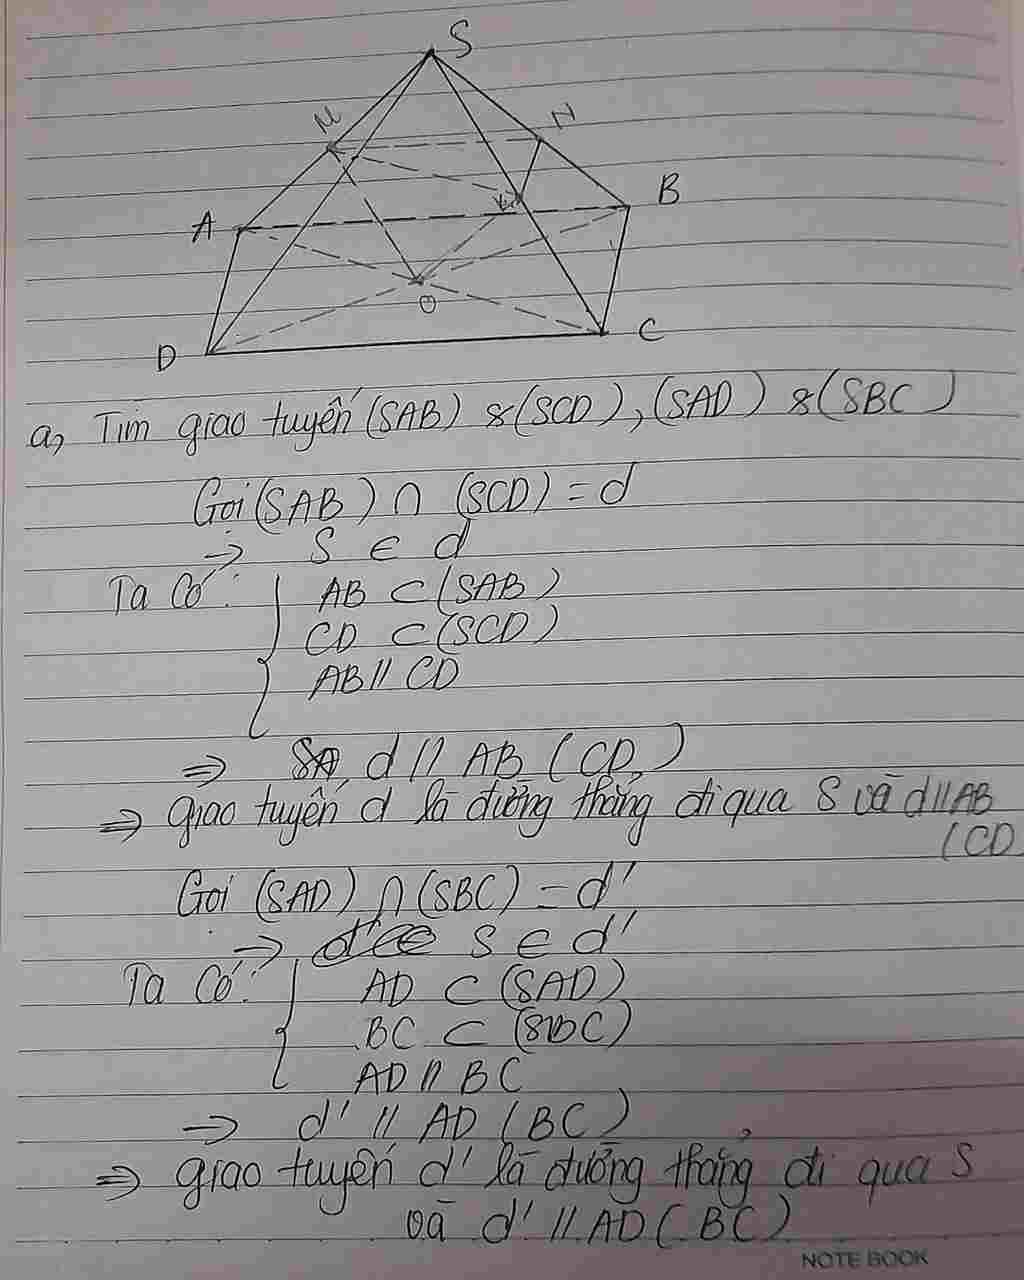 S
M
N
A
B
O
D
C
a, Tìm giao tuyến (SAB) & (SCD), (SAD) & (SBC)
Gọi (SAB) ∩ (SCD) = d
→ S ∈ d
Ta có: AB ⊂ (SAB)
CD ⊂ (SCD)
AB // CD
⇒ d // AB (CD)
⇒ giao tuyến d là đường thẳng đi qua S và d // AB
(CD
Gọi (SAD) ∩ (SBC) = d'
→ S ∈ d'
Ta có: AD ⊂ (SAD)
BC ⊂ (SBC)
AD // BC
→ d' // AD (BC)
⇒ giao tuyến d' là đường thẳng đi qua S
và d' // AD (BC)
NOTE BOOK